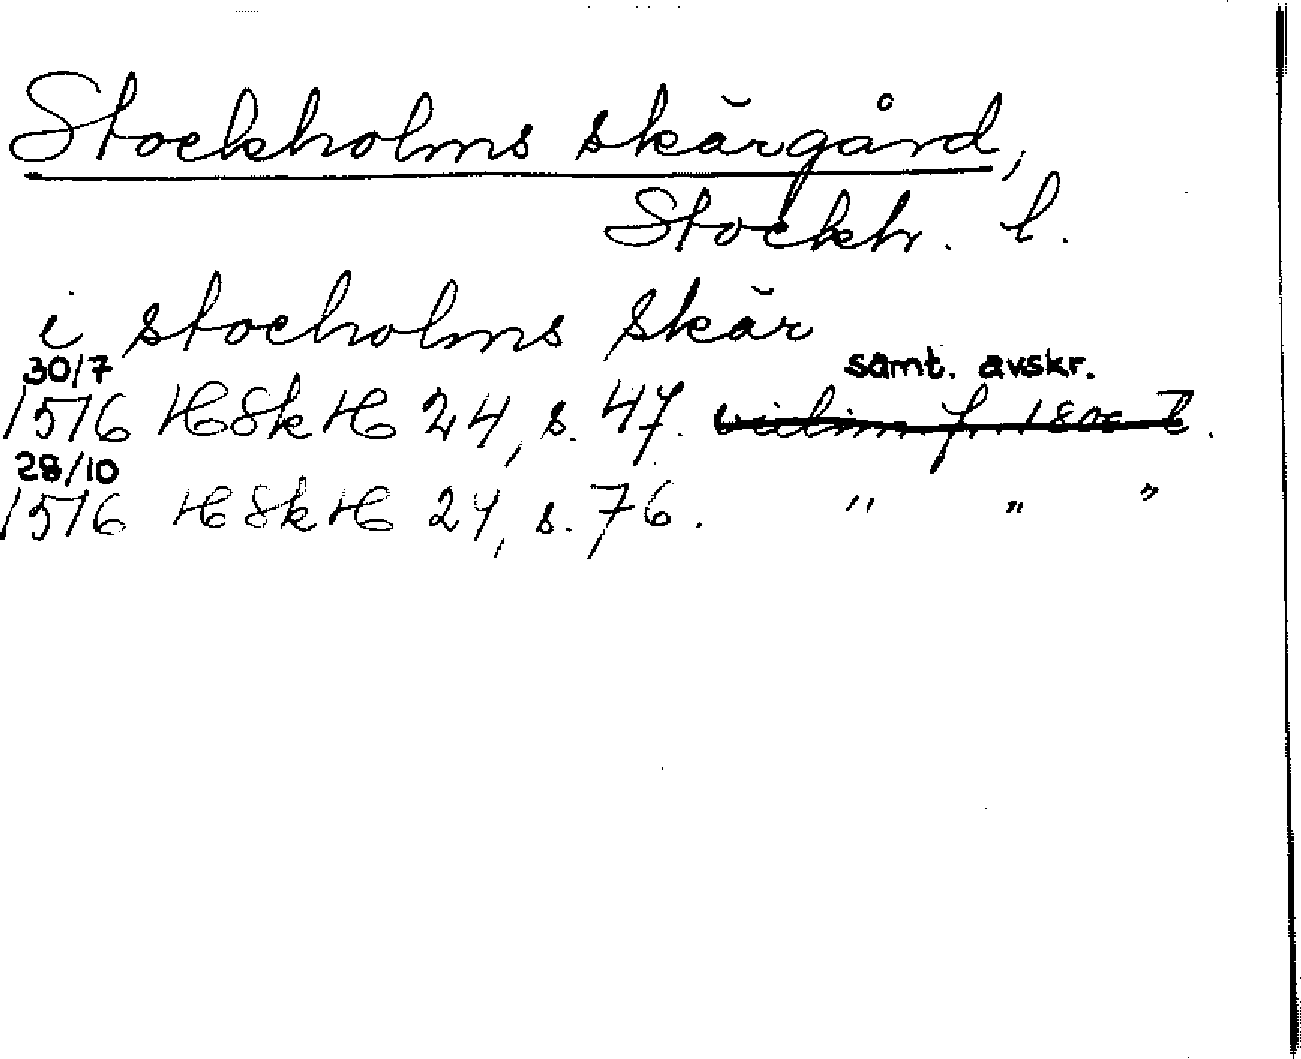 Stockholms skärgård,
Stockh. l.
i stocholms skär
30/7 samt. avskr.
1576 HSkH 24, s. 47. vidim. fr. 1800-t.
28/10
1576 HSkH 24, s. 76. " " "